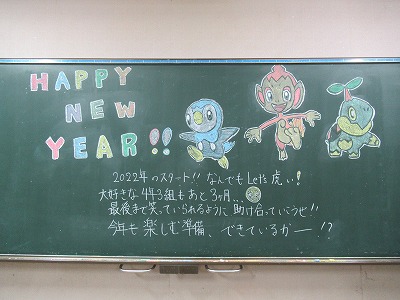 HAPPY
NEW
YEAR!!
2022年のスタート!! なんでも Let's 虎い!
大好きな4年3組もあと3ヶ月...
最後まで笑っていられるように 助け合っていこうぜ!!
今年も 楽しむ準備、できているかー!?